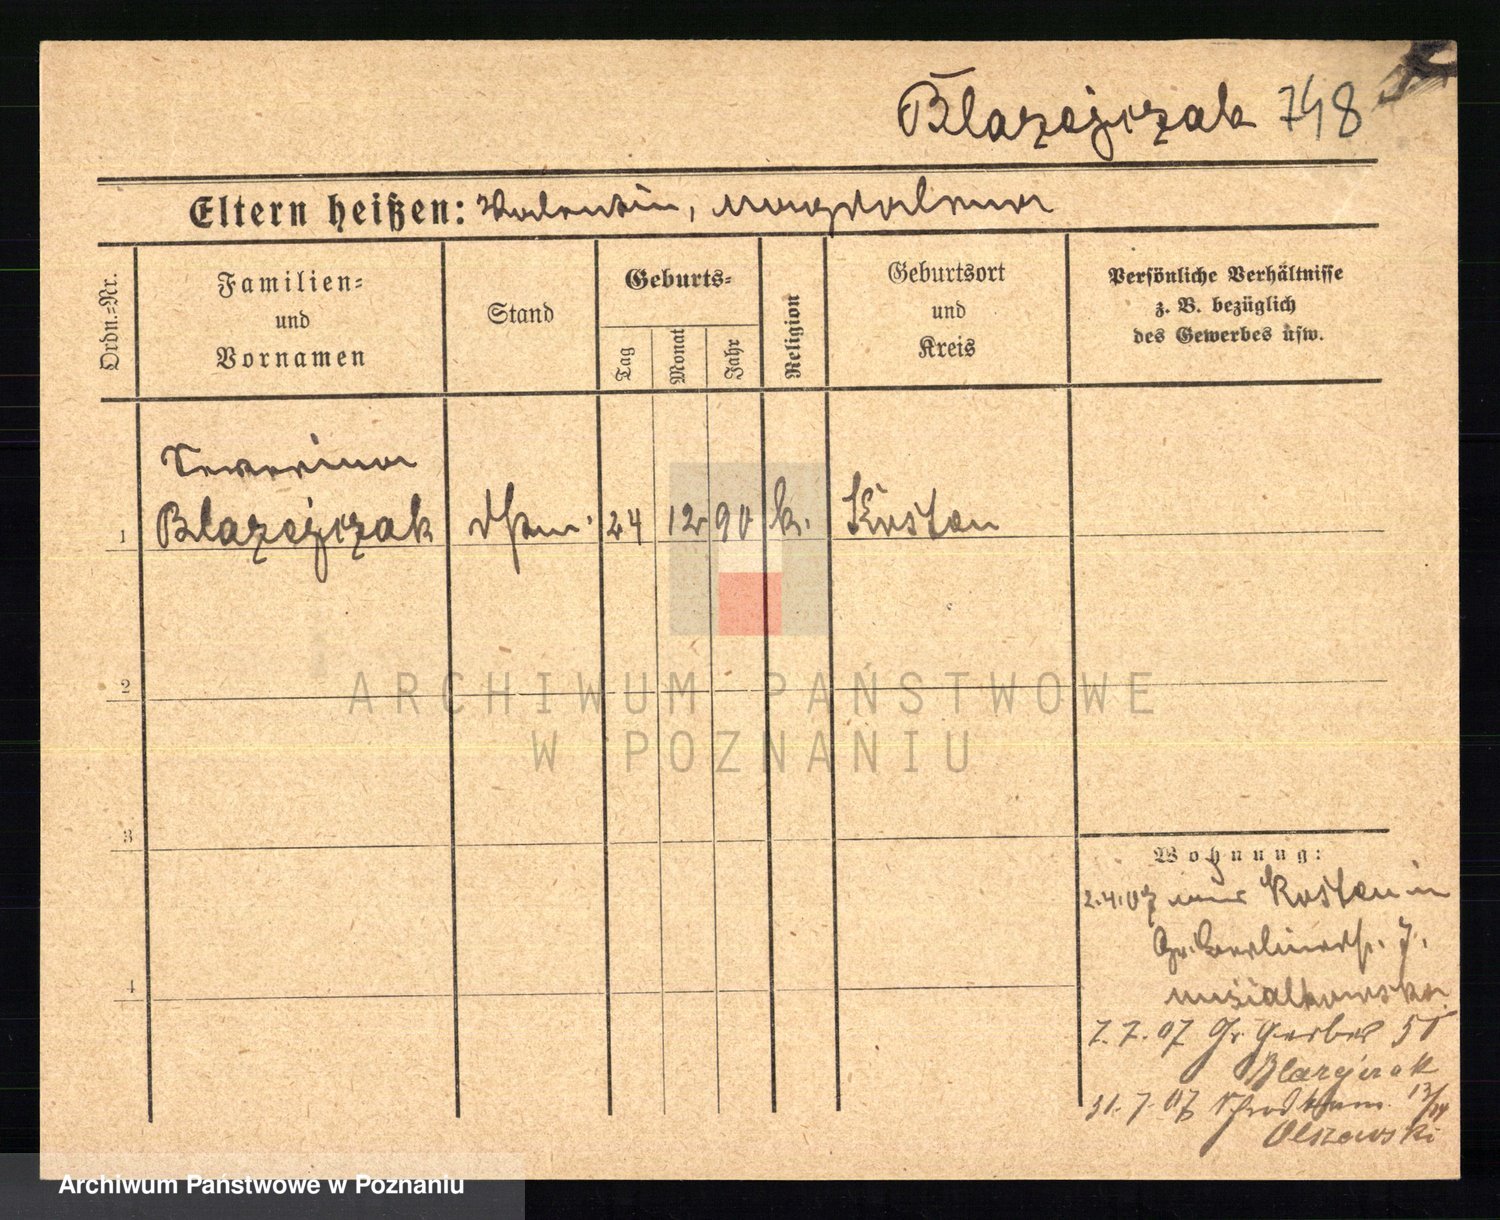 Błażejczak 748
Eltern heißen: Valentin, Magdalena
Ordn.-Nr.
Familien-
und
Vornamen
Stand
Geburts-
Tag
Monat
Jahr
Religion
Geburtsort
und
Kreis
Persönliche Verhältnisse
z. B. bezüglich
des Gewerbes usw.
Severina
1 Błażejczak 24 12 90 k. Kosten
2
3
4
ARCHIWUM PAŃSTWOWE
W POZNANIU
Wohnung:
2.4.07 aus Kosten in
Gr. Berlinerstr. 7.
7.7.07 Gr. Gerber 51
Błażejczak
31.7.07
Olszewski
Archiwum Państwowe w Poznaniu